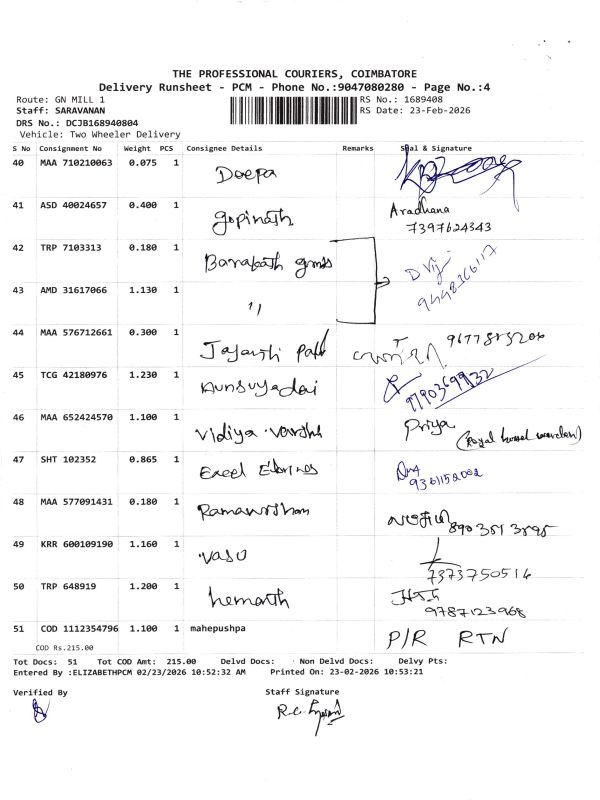 THE PROFESSIONAL COURIERS, COIMBATORE
Delivery Runsheet - PCM - Phone No.:9047080280 - Page No.:4
Route: GN MILL 1 RS No.: 1689408
Staff: SARAVANAN RS Date: 23-Feb-2026
DRS No.: DCJB168940804
Vehicle: Two Wheeler Delivery
S No Consignment No Weight PCS Consignee Details Remarks Seal & Signature
40 MAA 710210063 0.075 1 Deepa
41 ASD 40024657 0.400 1 gopinath Aradhana
7397624343
42 TRP 7103313 0.180 1 Barakath
43 AMD 31617066 1.130 1 11
44 MAA 576712661 0.300 1
45 TCG 42180976 1.230 1 9790369932
46 MAA 652424570 1.100 1 Vidiya Priya
47 SHT 102352 0.865 1 Excel 9361152002
48 MAA 577091431 0.180 1
49 KRR 600109190 1.160 1 vasu
7373750514
50 TRP 648919 1.200 1 hemanth
9787123968
51 COD 1112354796 1.100 1 mahepushpa P/R RTN
COD Rs.215.00
Tot Docs: 51 Tot COD Amt: 215.00 Delvd Docs: Non Delvd Docs: Delvy Pts:
Entered By :ELIZABETHPCM 02/23/2026 10:52:32 AM Printed On: 23-02-2026 10:53:21
Verified By Staff Signature